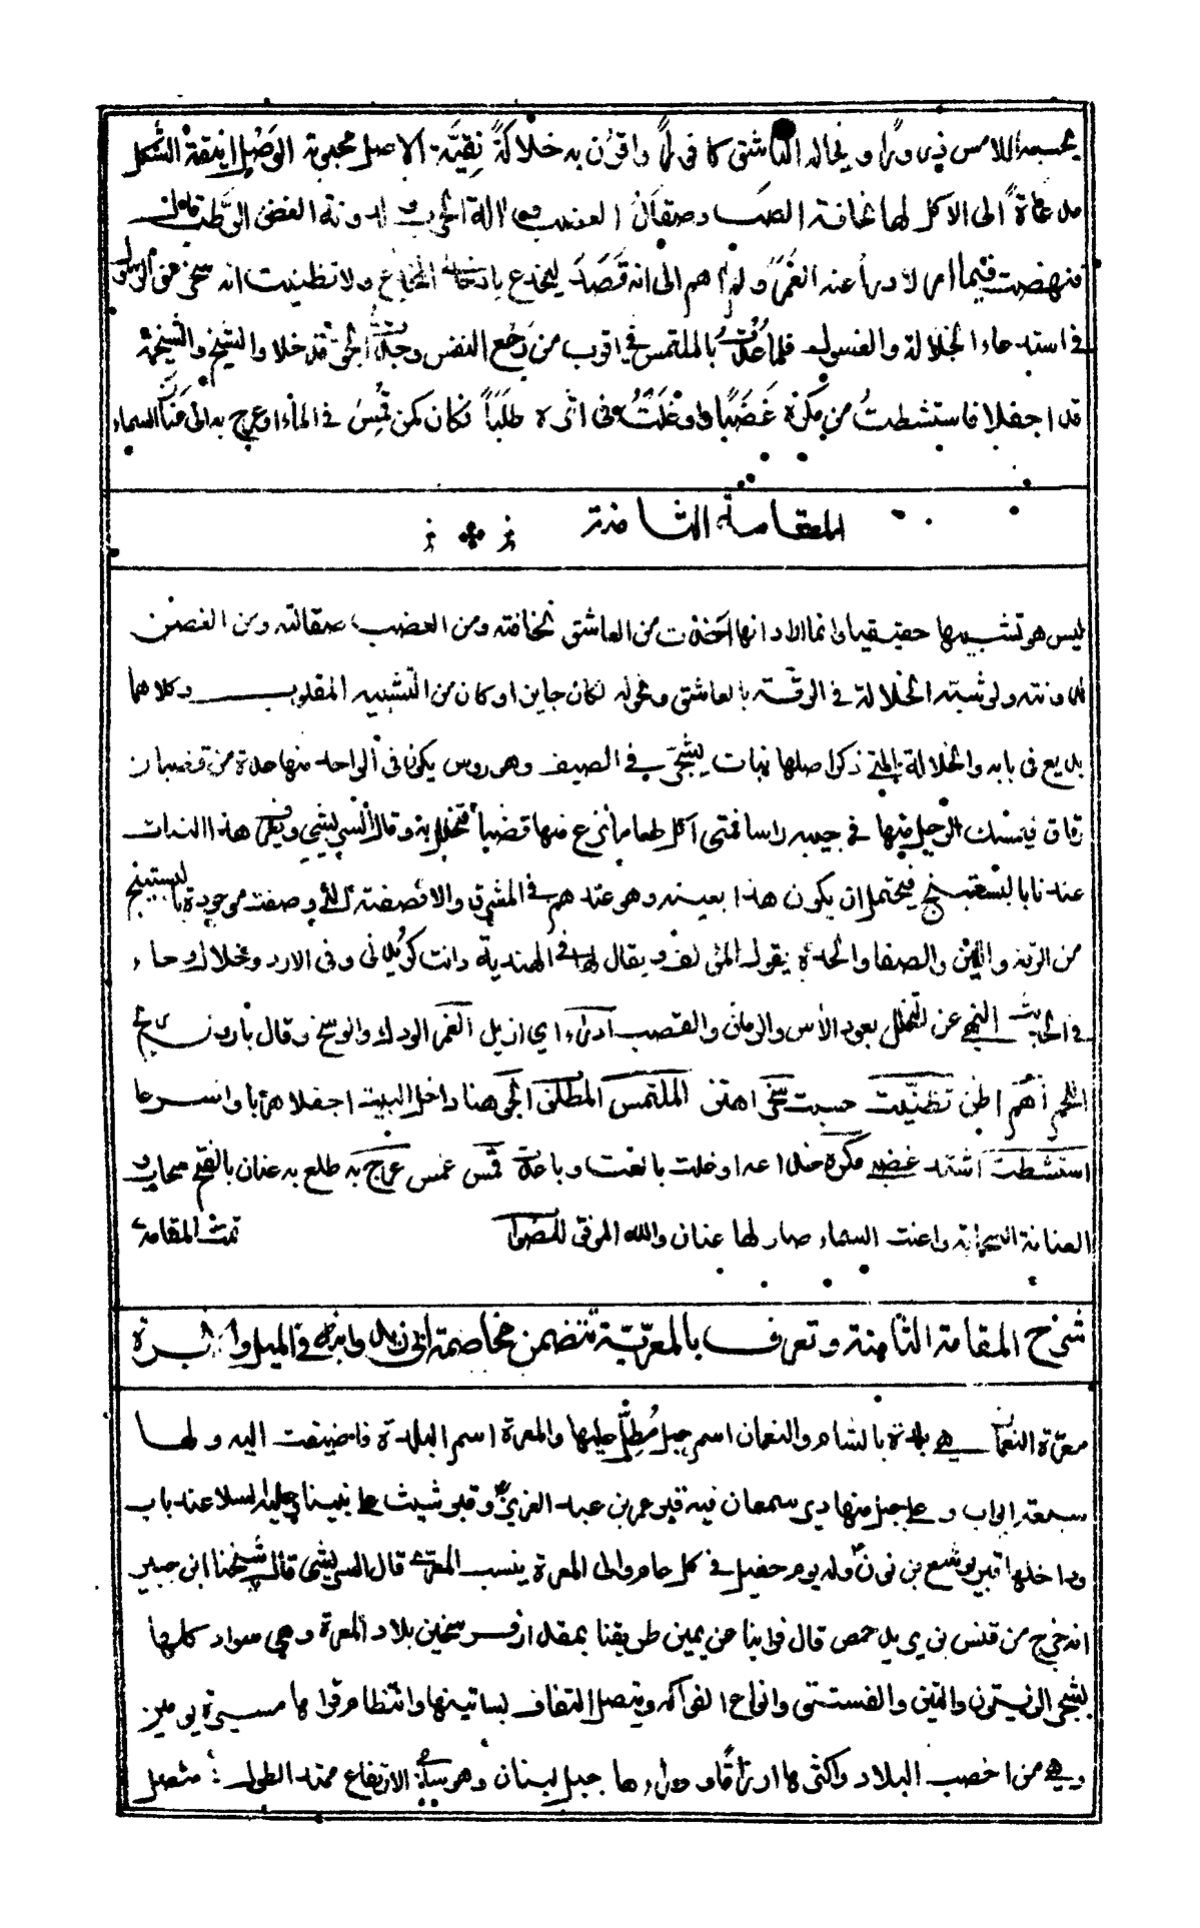 يحسبه اللامس ويخاله الناشق كافورا واقرن به خلالة نقية الاصل محبوبة الوصل انيقة الشكل
مدعاة الى الاكل لها نحافة الصب وصقال العضب والة الحرب ولدونة الغصن الرطب قال
فنهضت فيما امر لادرأ عنه الغمر ولم اهم الى انه قصد ليخدع بادخاله المخدع ولا تظنيت انه سخر من الرسول
في استدعاء الخلالة والغسول فلما عدت بالملتمس في اقرب من رجع النفس وجدت الجو قد خلا والشيخ والشيخة
قد اجفلا فاستشطت من مكره غضبا واوغلت في اثره طلبا فكان كمن قمس في الماء او عرج به الى عنان السماء
المقامة الثامنة
ليس هو تشبيها حقيقيا وانما اراد انها اخذت من العاشق نحافته ومن العضب صقالته ومن الغصن
لدونته ولو شبه الخلالة في الرقة بالعاشق ونحوله لكان جايز او كان من التشبيه المقلوب وكلاهما
بديع في بابه والخلالة التي ذكر اصلها نبات يشجر في الصيف وهو روس يكون في الواحد منها عدة من قضبان
رقاق فيمسك الرجل منها في جيبه راسا فمتى اكل طعاما نزع منها قضيبا فتخلل به وقال الشريشي ويعرف هذا النبات
عندنا بالبستينج فيحتمل ان يكون هذا بعينه وهو عندهم في المشرق والاوصفة التي وصفت موجودة بالبستينج
من الرقة واللين والصفا والحدة يقول المؤلف ويقال لها في الهندية دانت كريدني وفي الاردو خلال وجاء
في الحديث النهي عن التخلل بعود الآس والرمان والقصب ادراء اي ازيل الغمر الودك والوسخ وقال بارون ريح
اللحم اهم اظن تظنيت حسبت سخر اهتز الملتمس المطلق الجو هنا داخل البيت اجفلا هربا واسرعا
استشطت اشتد غضبه مكره خداعه اوغلت بالغت وباعدت قمس غمس عرج به طلع به عنان بالفتح سحاب
العنانة السحابة واعنت السماء صار لها عنان والله الموفق للصواب تمت المقامة
شرح المقامة الثامنة وتعرف بالمعرية تتضمن مخاصمة ابي زيد وابنه في الميل والابرة
معرة النعمان هي بلدة بالشام والنعمان اسم جبل مطل عليها والمعرة اسم البلدة فاضيفت اليه ولها
سبعة ابواب وعلى جبل منها دير سمعان فيه قبر عمر بن عبد العزيز وقبر شيث على نبينا وعليه السلام عند باب
وداخلها قبر يوشع بن نون وله يوم حفيل في كل عام والى المعرة ينسب المعري قال الشريشي قال شيخنا ابن جبير
انه خرج من قنسرين يريد حمص قال فراينا عن يمين طريقنا بمقدار فرسخين بلاد المعرة وهي سواد كلها
بشجر الزيتون والتين والفستق وانواع الفواكه ويتصل التفاف بساتينها وانتظام قراها مسيرة يومين
وهي من اخصب البلاد واكثرها ارزاقا ووراءها جبل لبنان وهو سامي الارتفاع ممتد الطول متصل